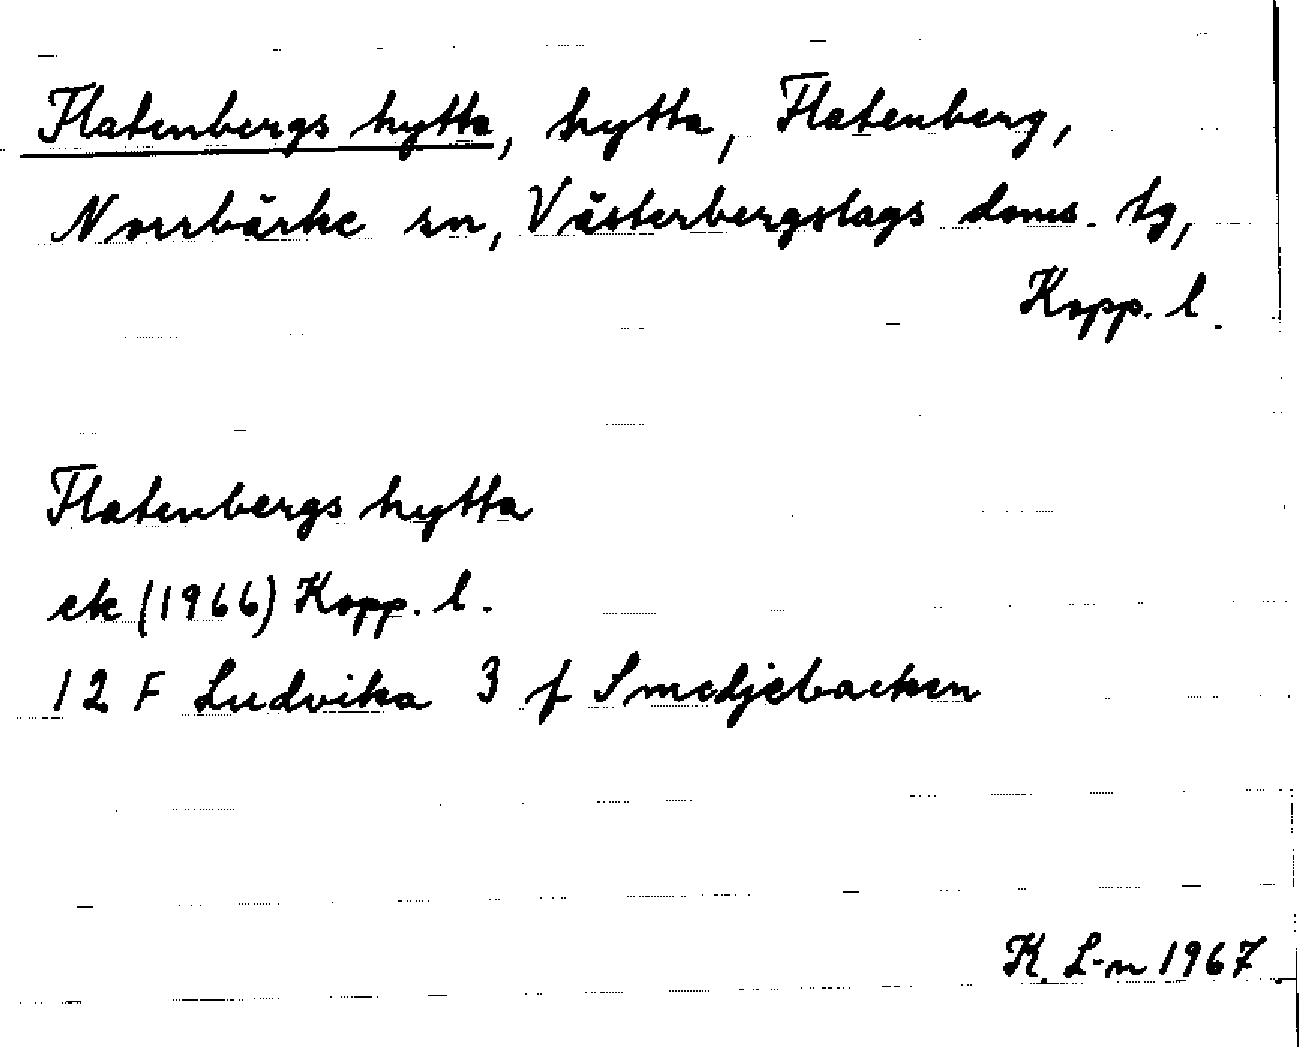 Flatenbergs hytta, hytta, Flatenberg,
Norrbärke sn, Västerbergslags doms. tg,
Kopp. l.
Flatenbergs hytta
ek (1966) Kopp. l.
12 F Ludvika 3 f Smedjebacken
K. L-n 1967